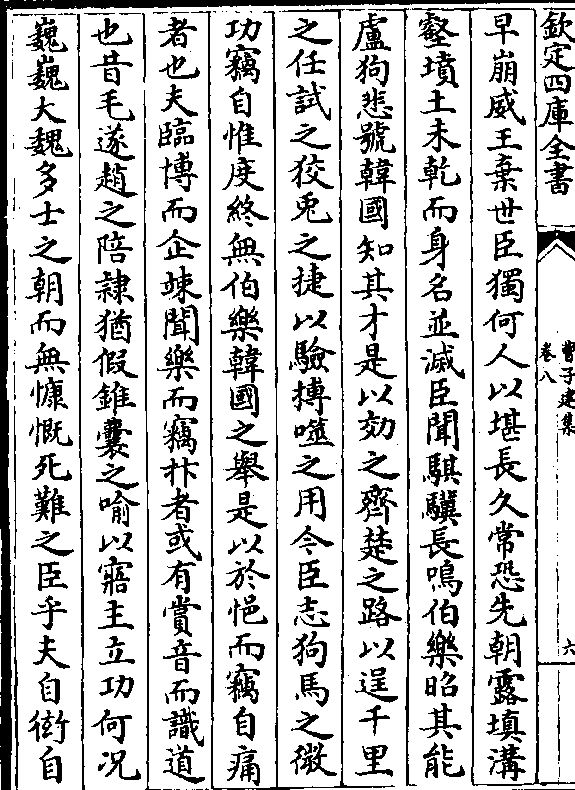 欽定四庫全書
曹子建集
卷八
六
早崩威王棄世臣獨何人以堪長久常恐先朝露填溝
壑墳土未乾而身名並滅臣聞騏驥長鳴伯樂昭其能
盧狗悲號韓國知其才是以効之齊楚之路以逞千里
之任試之狡兎之捷以驗搏噬之用今臣志狗馬之微
功竊自惟度終無伯樂韓國之舉是以於悒而竊自痛
者也夫臨博而企竦聞樂而竊抃者或有賞音而識道
也昔毛遂趙之陪隷猶假錐囊之喻以寤主立功何况
巍巍大魏多士之朝而無慷慨死難之臣乎夫自衒自